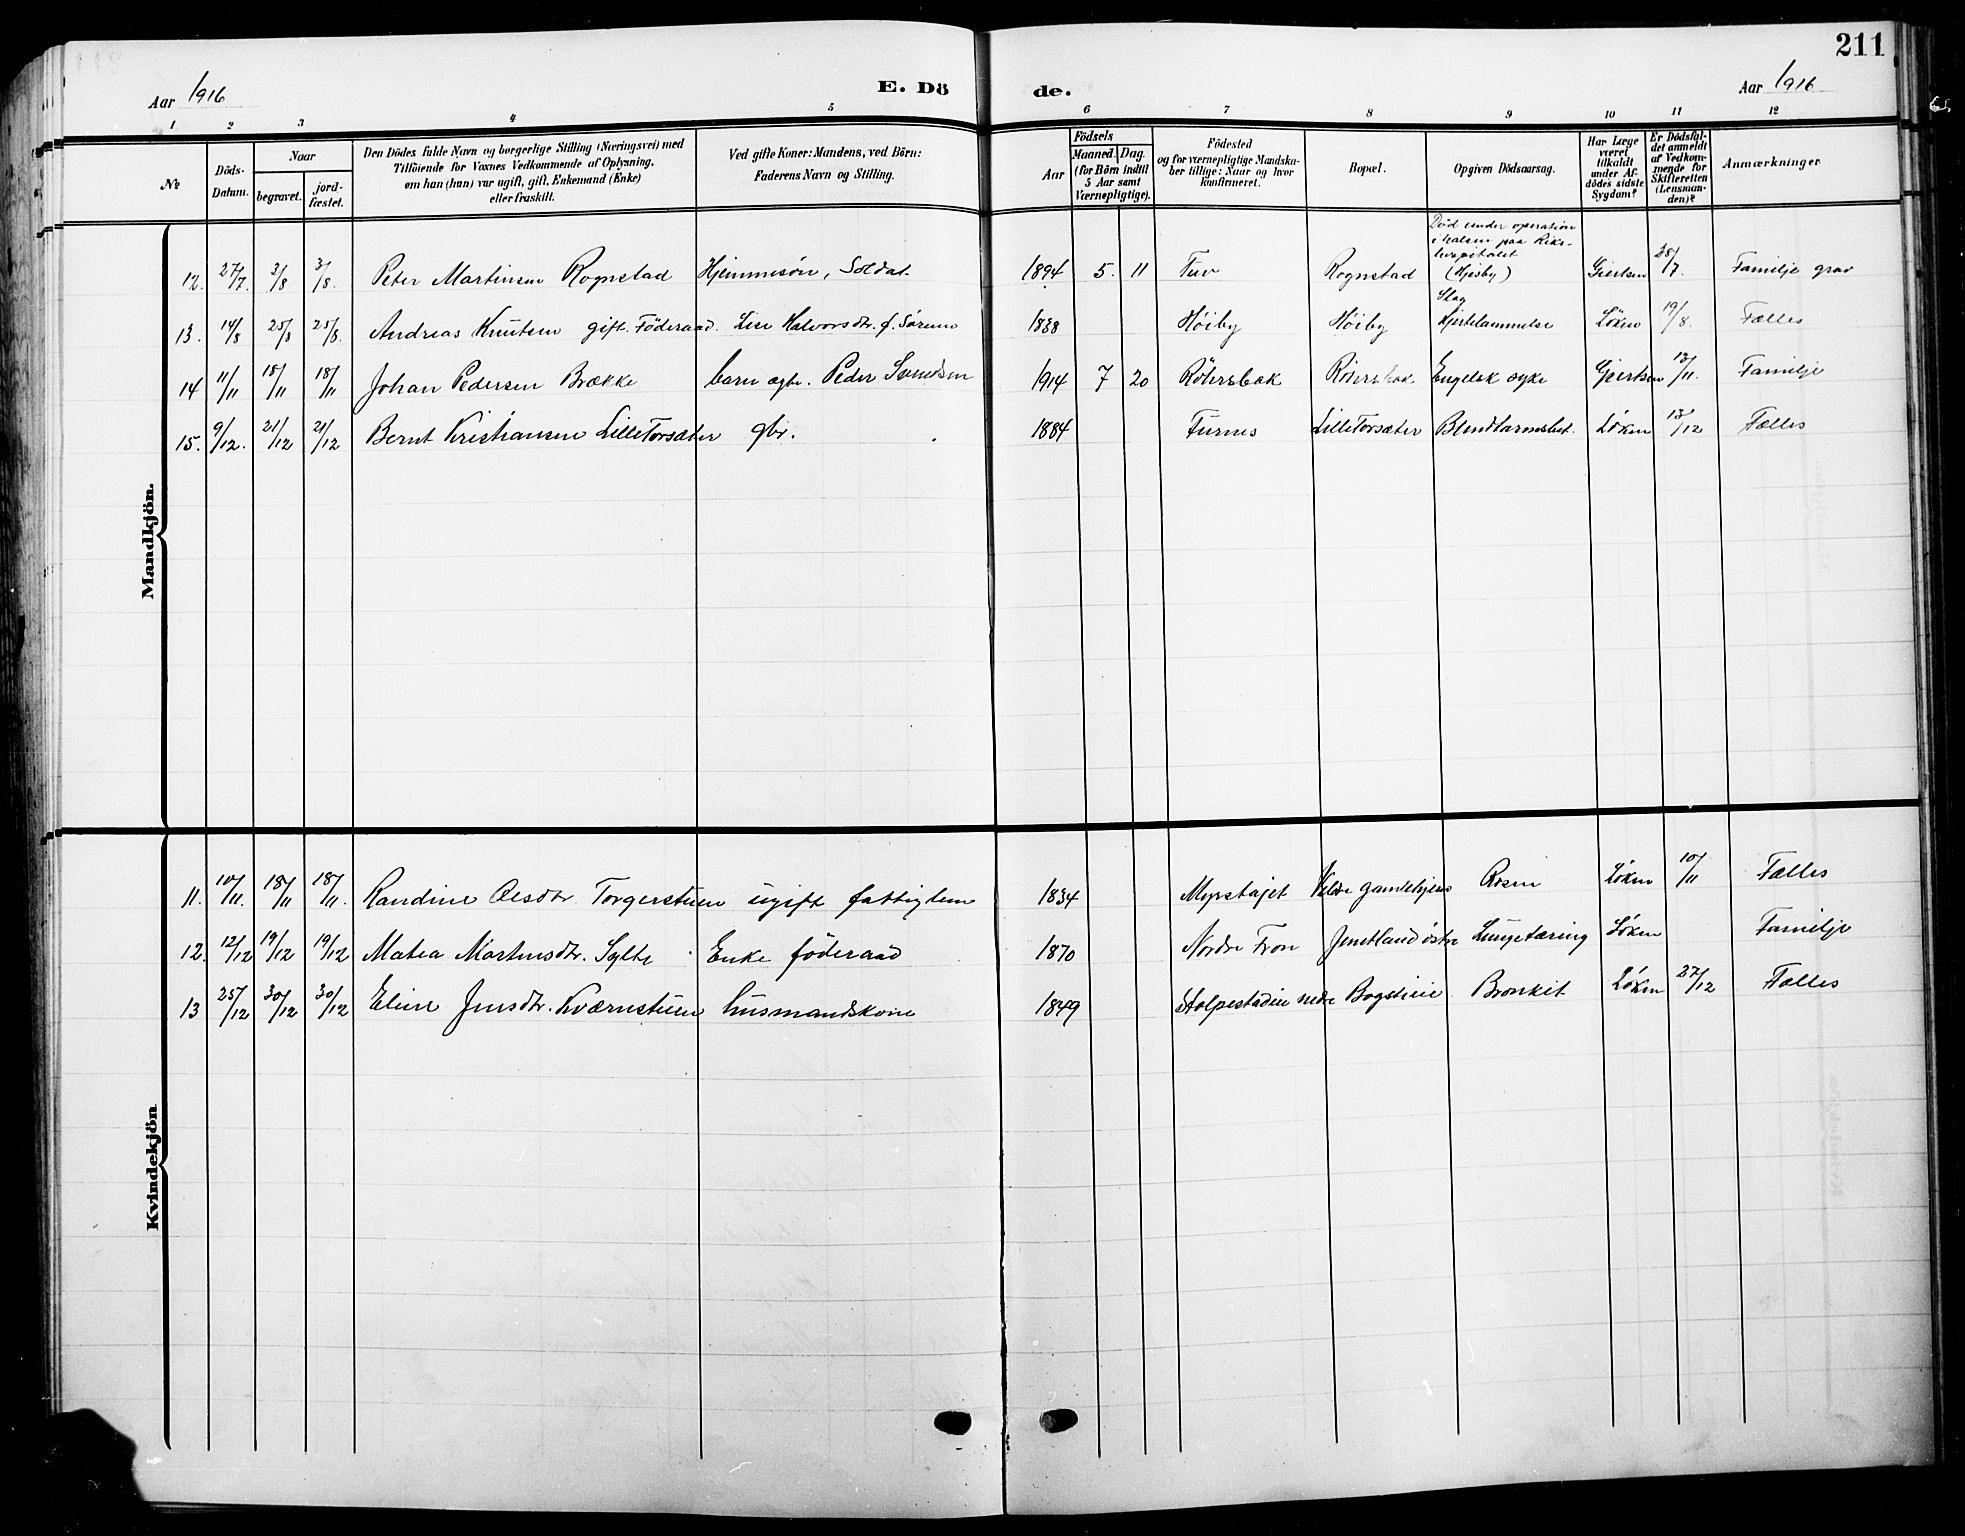 211
Aar 1916 E. Dö de. Aar 1916
1 2 3 4 5 6 7 8 9 10 11 12
№
Döds-
Datum.
Naar
begravet.
jord-
fæstet.
Den Dödes fulde Navn og borgerlige Stilling (Næringsvei) med
Tilföiende for Voxnes Vedkommende af Oplysning,
om han (hun) var ugift, gift, Enkemand (Enke)
eller fraskilt.
Ved gifte Koner: Mandens, ved Börn:
Faderens Navn og Stilling.
Födsels
Aar
Maaned. Dag.
(for Börn indtil
5 Aar samt
Værnepligtige).
Födested
og for værnepligtige Mandska-
ber tillige: Naar og hvor
konfirmeret.
Bopæl.
Opgiven Dödsaarsag.
Har Læge
været
tilkaldt
under Af-
dödes sidste
Sygdom?
Er Dödsfal-
det anmeldt
af Vedkom-
mende for
Skifteretten
(Lensman-
den)?
Anmærkninger
Mandkjön.
12. 27/7. 3/8 3/8. Peter Martinsen Rognstad Hjemmesøn, Soldat 1894 5. 11 Tuv Rognstad Død under operation
i halsen paa Riks-
hospitalet
Giertsen 28/7. Familje grav
13. 14/8 25/8 25/8. Andreas Knutsen gift. Föderaad. Lise Halvorsdtr. f. Sørum 1838 Høiby Høiby Slag
Hjertelammelse Løken 19/8. Fælles
14 11/11 18/11 18/11 Johan Pedersen Brække barn Peder Svendsen 1914 7 20 Rötersbak Engelsk syke Gjertsen 13/11. Familje
15. 9/12. 21/12 21/12 Bernt Kristiansen Lille Torsæter gbr. 1884 Furnes Lille Torsæter Blindtarmsbet. Løken 13/12 Fælles
Kvindekjön
11. 10/11. 18/11 18/11. Randine Olsdtr. Torgerstuen ugift fattiglem 1834 gamlehjem Rosen Løken 10/11 Fælles
12. 12/12 19/12 19/12 Matea Martinsdtr. Sylte Enke föderaad 1870 Nordre Fron østre Lungetæring Løken Familje
13 25/12 30/12 30/12 Eline Jensdtr. Kværnstuen husmandskone 1849 Stolpestadeie nedre Bronkit Løken 27/12 Fælles